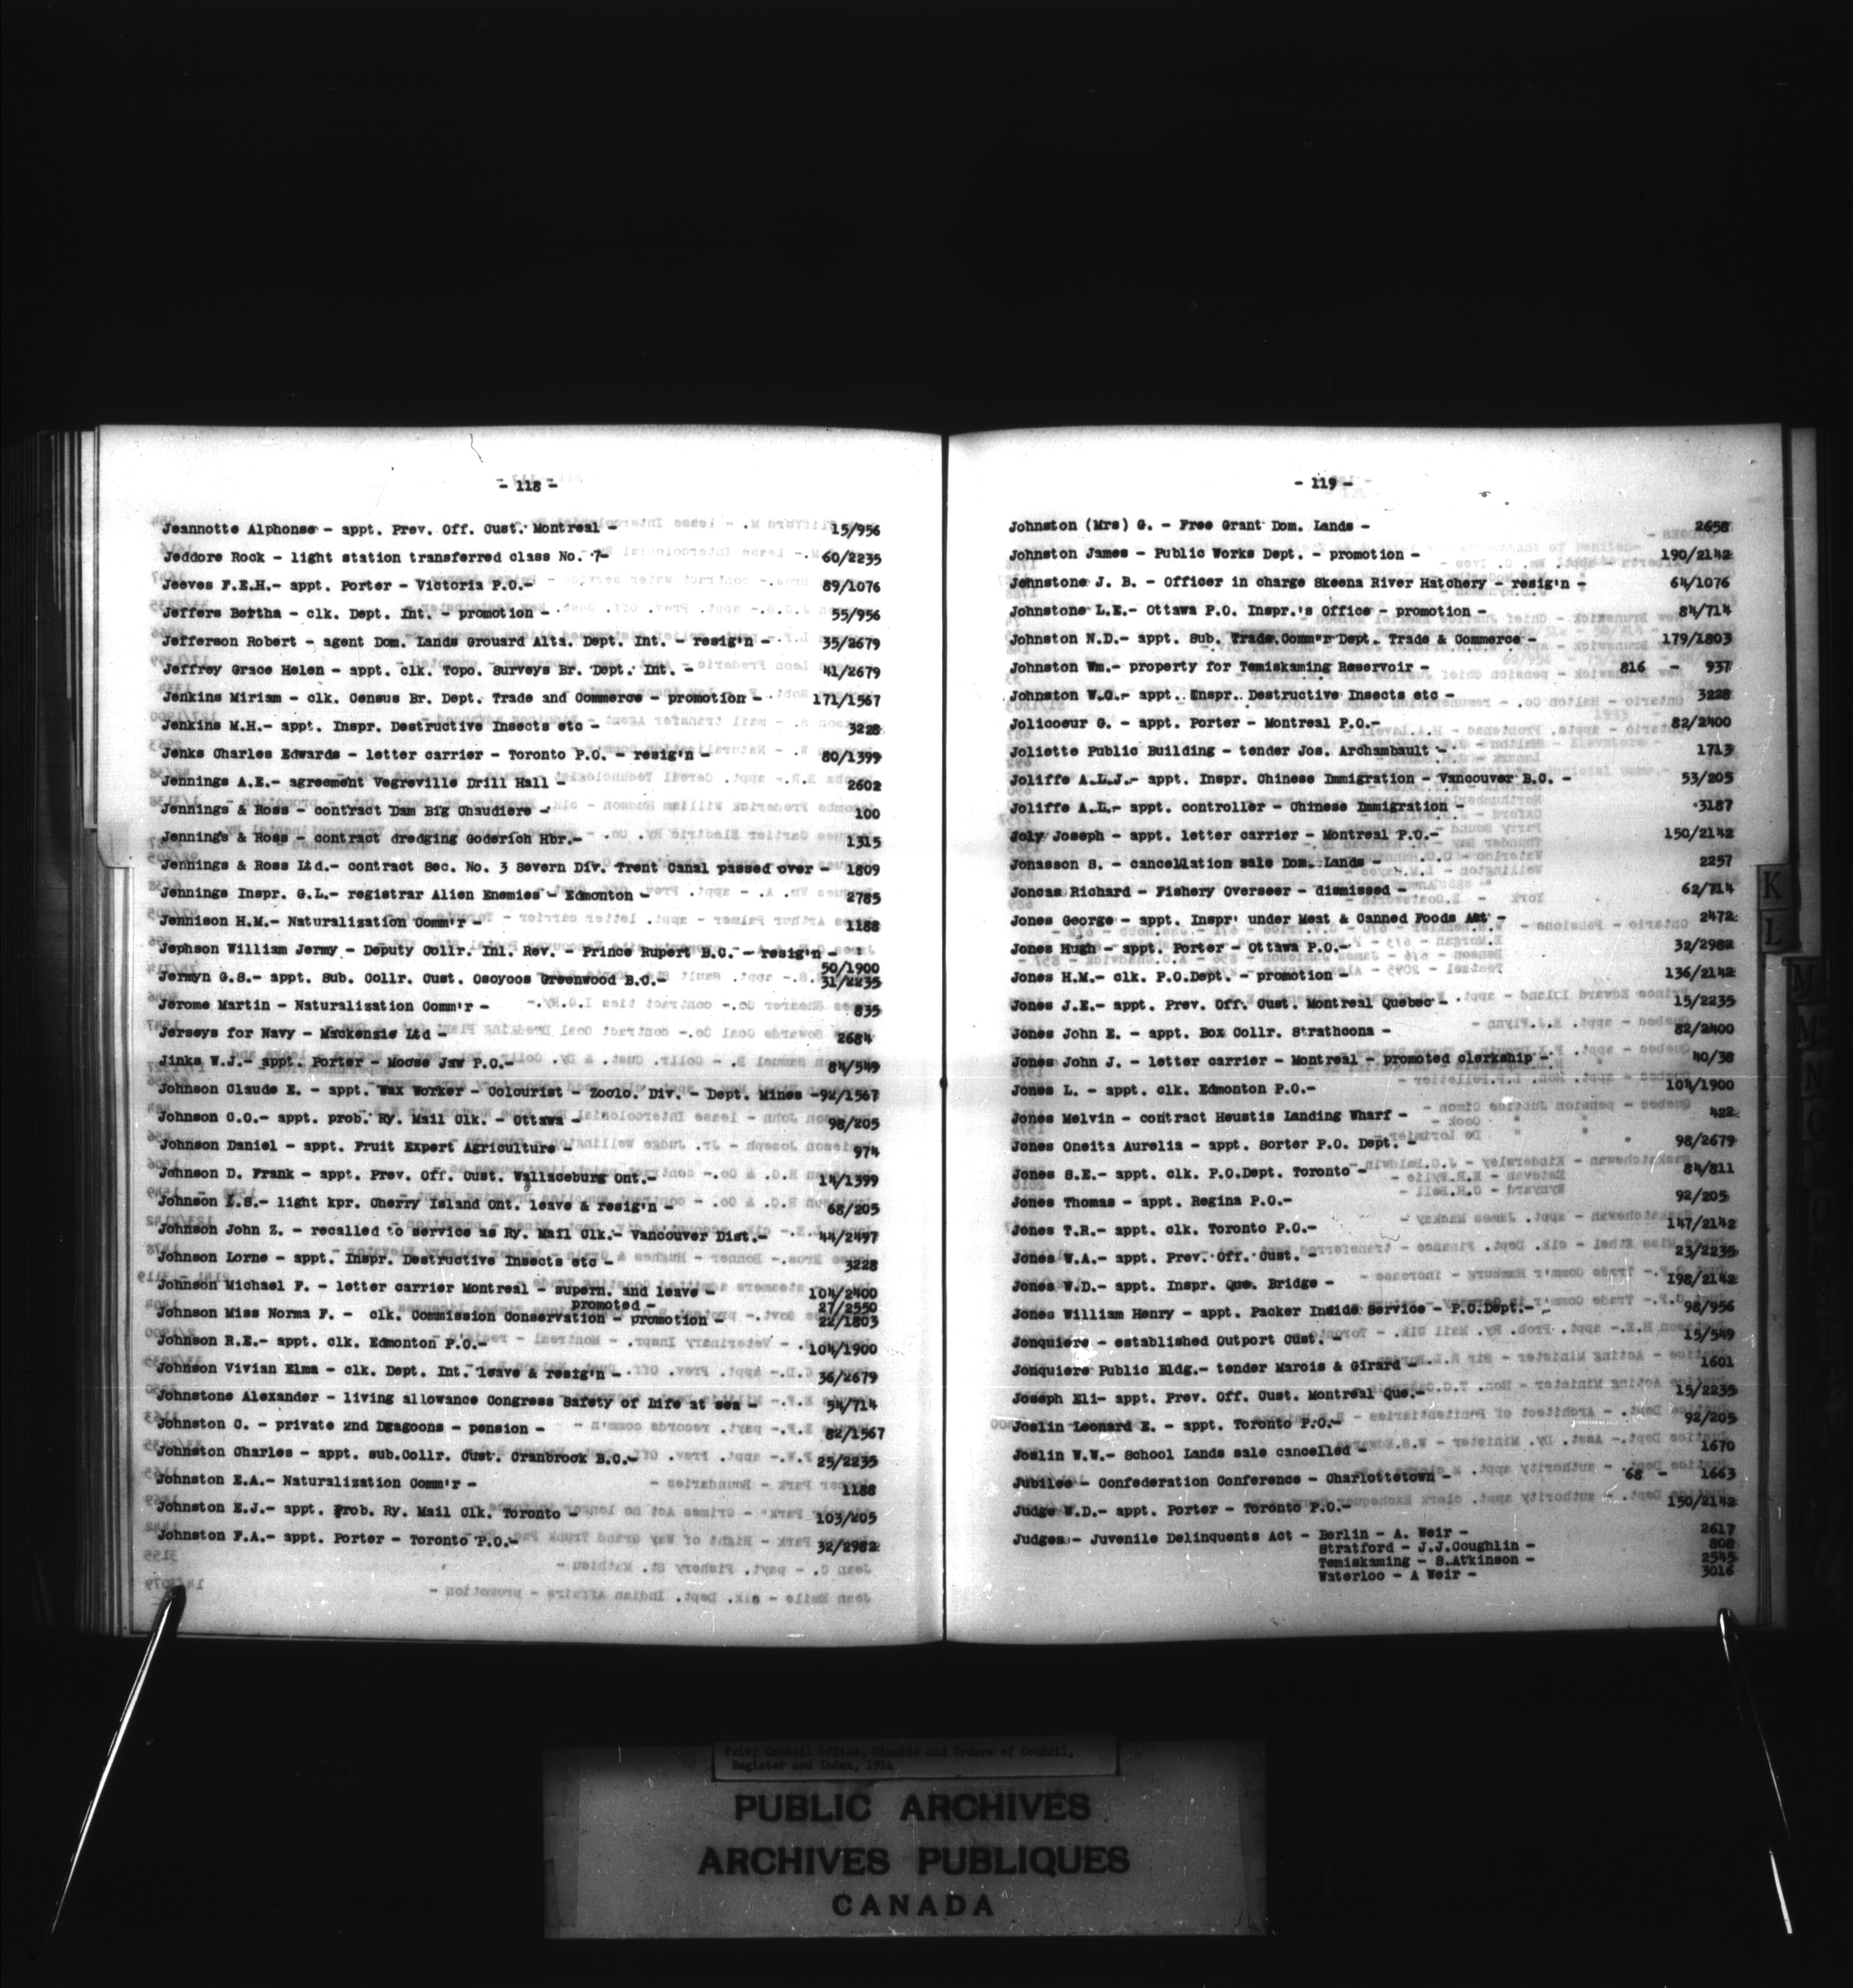 - 118 -
Jeannotte Alphonse - appt. Prev. Off. Cust. Montreal - 15/956
Jeddore Rock - light station transferred class No. 7- 60/2235
Jeeves F.E.H.- appt. Porter - Victoria P.O.- 89/1076
Jeffers Bertha - clk. Dept. Int. - promotion - 55/956
Jefferson Robert - agent Dom. Lands Grouard Alta. Dept. Int. - resig'n - 35/2679
Jeffrey Grace Helen - appt. clk. Topo. Surveys Br. Dept. Int. - 41/2679
Jenkins Miriam - clk. Census Br. Dept. Trade and Commerce - promotion - 171/1567
Jenkins M.H.- appt. Inspr. Destructive Insects etc - 3228
Jenks Charles Edwards - letter carrier - Toronto P.O. - resig'n - 80/1399
Jennings A.E.- agreement Vegreville Drill Hall - 2602
Jennings & Ross - contract Dam Big Chaudiere - 100
Jennings & Ross - contract dredging Goderich Hbr.- 1315
Jennings & Ross Ltd.- contract Sec. No. 3 Severn Div. Trent Canal passed over - 1809
Jennings Inspr. G.L.- registrar Alien Enemies - Edmonton - 2785
Jennison H.M.- Naturalization Comm'r - 1188
Jephson William Jermy - Deputy Collr. Inl. Rev. - Prince Rupert B.C. - resig'n -
50/1900
Jermyn G.S.- appt. Sub. Collr. Cust. Osoyoos Greenwood B.C.- 31/2235
Jerome Martin - Naturalization Comm'r - 835
Jerseys for Navy - Mackenzie Ltd - 2684
Jinks W.J.- appt. Porter - Moose Jaw P.O.- 84/549
Johnson Claude E. - appt. Wax Worker - Colourist - Zoolo. Div. - Dept. Mines -92/1567
Johnson C.O.- appt. prob. Ry. Mail Clk. - Ottawa - 98/205
Johnson Daniel - appt. Fruit Expert Agriculture - 974
Johnson D. Frank - appt. Prev. Off. Cust. Wallaceburg Ont.- 14/1399
Johnson L.S.- light kpr. Cherry Island Ont. leave & resig'n - 68/205
Johnson John Z. - recalled to service as Ry. Mail Clk.- Vancouver Dist.- 44/2497
Johnson Lorne - appt. Inspr. Destructive Insects etc - 3228
Johnson Michael F. - letter carrier Montreal - supern. and leave - 104/2400
promoted - 27/2550
Johnson Miss Norma F. - clk. Commission Conservation - promotion - 22/1803
Johnson R.E.- appt. clk. Edmonton P.O.- 104/1900
Johnson Vivian Elma - clk. Dept. Int. leave & resig'n - 36/2679
Johnstone Alexander - living allowance Congress Safety of Life at sea - 54/714
Johnston C. - private 2nd Dragoons - pension - 82/1567
Johnston Charles - appt. sub.Collr. Cust. Cranbrook B.C.- 25/2235
Johnston E.A.- Naturalization Comm'r - 1188
Johnston E.J.- appt. Prob. Ry. Mail Clk. Toronto - 103/205
Johnston F.A.- appt. Porter - Toronto P.O.- 32/2982
- 119 -
Johnston (Mrs) G. - Free Grant Dom. Lands - 2658
Johnston James - Public Works Dept. - promotion - 190/2142
Johnstone J. B. - Officer in charge Skeena River Hatchery - resig'n - 64/1076
Johnstone L.E.- Ottawa P.O. Inspr.'s Office - promotion - 84/714
Johnston N.D.- appt. Sub. Trade.Comm'r Dept. Trade & Commerce - 179/1803
Johnston Wm.- property for Temiskaming Reservoir - 816 - 937
Johnston W.C.- appt. Inspr. Destructive Insects etc - 3228
Jolicoeur G. - appt. Porter - Montreal P.O.- 82/2400
Joliette Public Building - tender Jos. Archambault - 1713
Joliffe A.L.J.- appt. Inspr. Chinese Immigration - Vancouver B.C. - 53/205
Joliffe A.L.- appt. controller - Chinese Immigration - 3187
Joly Joseph - appt. letter carrier - Montreal P.O.- 150/2142
Jonasson S. - cancellation sale Dom. Lands - 2257
Joncas Richard - Fishery Overseer - dismissed - 62/714
Jones George - appt. Inspr' under Meat & Canned Foods Act - 2472
Jones Hugh - appt. Porter - Ottawa P.O.- 32/2982
Jones H.M.- clk. P.O.Dept. - promotion - 136/2142
Jones J.E.- appt. Prev. Off. Cust. Montreal Quebec - 15/2235
Jones John E. - appt. Box Collr. Strathcona - 82/2400
Jones John J. - letter carrier - Montreal - promoted clerkship - 40/38
Jones L. - appt. clk. Edmonton P.O.- 104/1900
Jones Melvin - contract Heustis Landing Wharf - 422
Jones Oneita Aurelia - appt. Sorter P.O. Dept. - 98/2679
Jones S.E.- appt. clk. P.O.Dept. Toronto - 84/811
Jones Thomas - appt. Regina P.O.- 92/205
Jones T.R.- appt. clk. Toronto P.O.- 147/2142
Jones W.A.- appt. Prev. Off. Cust. - 23/2235
Jones W.D.- appt. Inspr. Que. Bridge - 198/2142
Jones William Henry - appt. Packer Inside Service - P.O.Dept.- 98/956
Jonquiere - established Outport Cust. - 15/549
Jonquiere Public Bldg.- tender Marois & Girard - 1601
Joseph Eli- appt. Prev. Off. Cust. Montreal Que.- 15/2235
Joslin Leonard E. - appt. Toronto P.O.- 92/205
Joslin W.W.- School Lands sale cancelled - 1670
Jubilee - Confederation Conference - Charlottetown - 68 - 1663
Judge W.D.- appt. Porter - Toronto P.O.- 150/2142
Judges - Juvenile Delinquents Act - Berlin - A. Weir - 2617
Stratford - J.J.Coughlin - 808
Temiskaming - S.Atkinson - 2545
Waterloo - A Weir - 3016
K
L
M
Privy Council Office, Minutes and Orders of Council,
Register and Index, 1914
PUBLIC ARCHIVES
ARCHIVES PUBLIQUES
CANADA